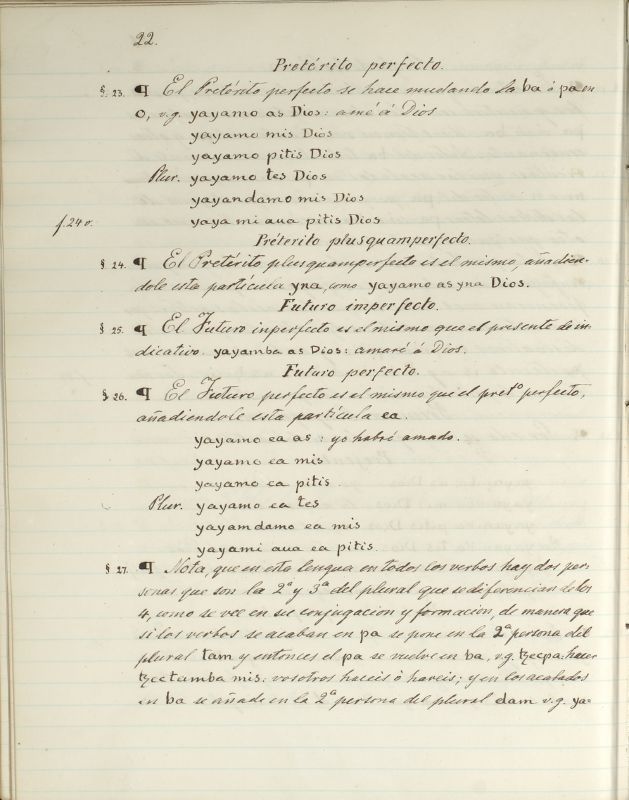 22.
Pretérito perfecto.
§. 23. ¶ El Pretérito perfecto se hace mudando la ba ó pa en
o, v.g. yayamo as Dios: amé á Dios
yayamo mis Dios
yayamo pitis Dios
Plur. yayamo tes Dios
yayandamo mis Dios
f. 24 v. yaya mi aua pitis Dios
Préterito plusquamperfecto.
§ 24. ¶ El Pretérito plusquamperfecto es el mismo, añadien-
dole esta partícula yna, como yayamo as yna Dios.
Futuro imperfecto.
§ 25. ¶ El Futuro inperfecto es el mismo que el presente de in-
dicativo. yayamba as Dios: amaré á Dios.
Futuro perfecto.
§ 26. ¶ El Futuro perfecto es el mismo qui el pretº perfecto,
añadiendole esta partícula ea.
yayamo ea as: yo habré amado.
yayamo ea mis
yayamo ea pitis.
Plur. yayamo ea tes
yayamdamo ea mis
yayami aua ea pitis.
§ 27. ¶ Nota, que en esta lengua en todos los verbos hay dos per-
sonas que son la 2ª y 3ª del plural que se diferencian de los
4, como se vee en su conjugacion y formacion, de manera que
si los verbos se acaban en pa se pone en la 2ª persona del
plural tam y entonces el pa se vuelve en ba, v.g. tzecpa: hacer
tzectamba mis: vosotros haceis ó hareis; y en los acabados
en ba se añade en la 2ª persona del plural dam v.g. ya-